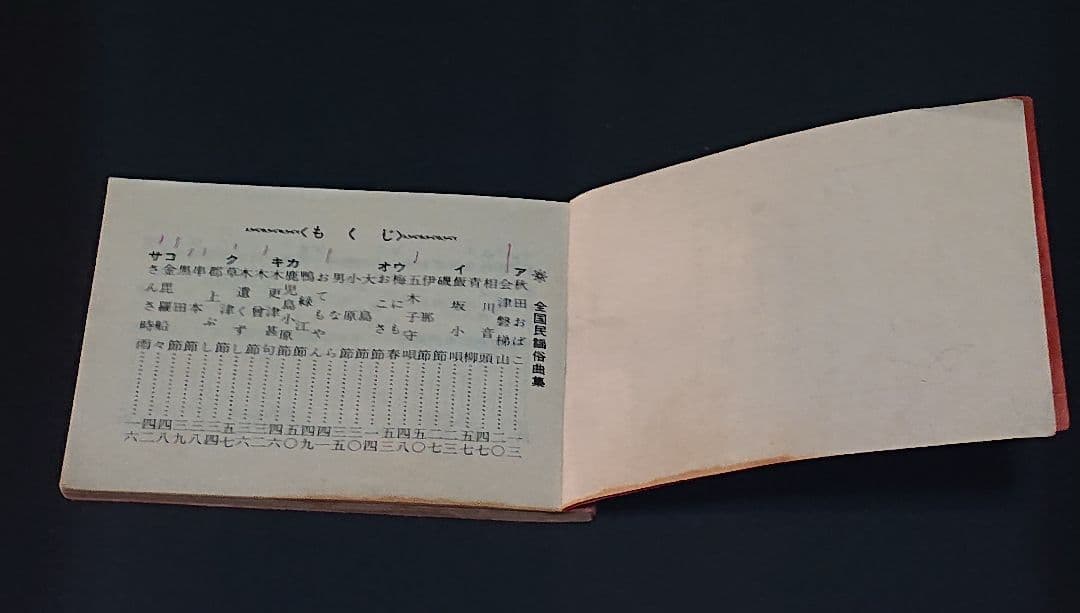 もくじ
全国民謡俗曲集
ア 秋田おばこ…………一三
会津磐梯山…………二〇
相川音頭…………四七
青柳…………五七
イ 飯坂小唄…………二三
磯節…………二七
伊那節…………五〇
五木子守唄…………四八
ウ 梅にも春…………五三
オ おこさ節…………一四
大島節…………三〇
小原節…………三五
男なら…………四一
おてもやん…………四九
カ 鴨緑江節…………五〇
鹿児島小原節…………四六
キ 木更津甚句…………三二
木曾節…………三六
木遣くずし…………五七
ク 草津節…………三四
郡上ぶし…………三八
串本節…………三九
黒田節…………四八
コ 金毘羅船々…………四二
サ さんさ時雨…………一六